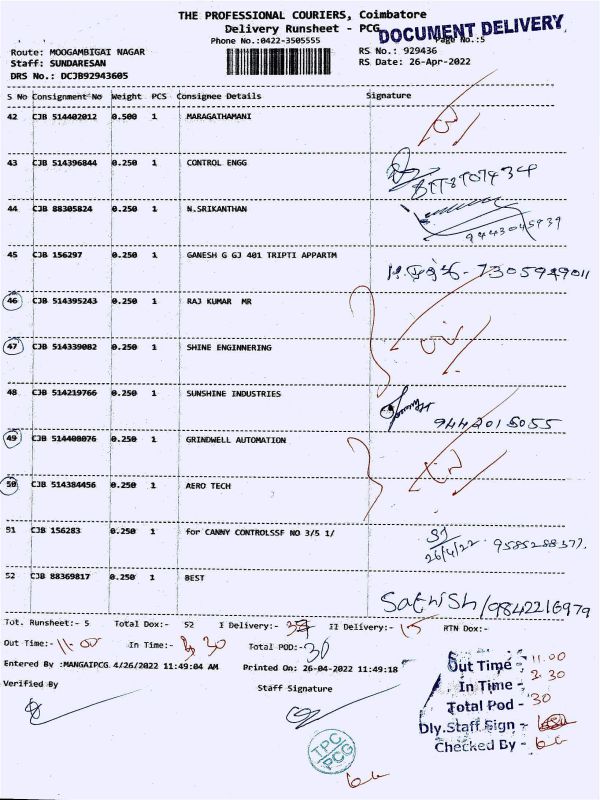 THE PROFESSIONAL COURIERS, Coimbatore
Delivery Runsheet - PCG
DOCUMENT DELIVERY
Phone No.:0422-3505555 Page No.:5
Route: MOOGAMBIGAI NAGAR RS No.: 929436
Staff: SUNDARESAN RS Date: 26-Apr-2022
DRS No.: DCJB92943605
S No Consignment No Weight PCS Consignee Details Signature
42 CJB 514402012 0.500 1 MARAGATHAMANI
43 CJB 514396844 0.250 1 CONTROL ENGG
44 CJB 88305824 0.250 1 N.SRIKANTHAN 9443045939
45 CJB 156297 0.250 1 GANESH G GJ 401 TRIPTI APPARTM 7305949011
46 CJB 514395243 0.250 1 RAJ KUMAR MR
47 CJB 514339082 0.250 1 SHINE ENGINNERING
48 CJB 514219766 0.250 1 SUNSHINE INDUSTRIES 9442015055
49 CJB 514400076 0.250 1 GRINDWELL AUTOMATION
50 CJB 514384456 0.250 1 AERO TECH
51 CJB 156283 0.250 1 for CANNY CONTROLSSF NO 3/5 1/ 26/4/22. 9585288377.
52 CJB 88369817 0.250 1 BEST Sathish/9842216979
Tot. Runsheet:- 5 Total Dox:- 52 I Delivery:- II Delivery:- 15 RTN Dox:-
Out Time:- 11.00 In Time:- 30 Total POD:- 30
Entered By :MANGAIPCG 4/26/2022 11:49:04 AM Printed On: 26-04-2022 11:49:18
Verified By Staff Signature
Out Time - 11.00
In Time - 2.30
Total Pod - 30
Dly.Staff Sign -
Checked By -
TPC
PCG